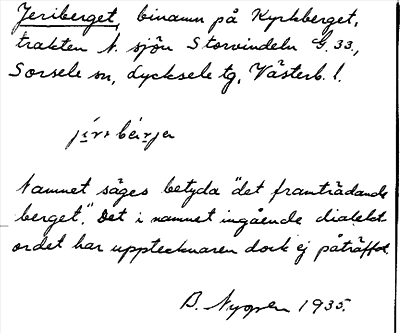 Jeriberget, binamn på Kyrkberget,
trakten N. sjön Storvindeln G. 33.,
Sorsele sn, Lycksele tg, Västerb. l.
Namnet säges betyda "det framträdande
berget." Det i namnet ingående dialekt-
ordet har upptecknaren dock ej påträffat.
B. Nygren 1935.